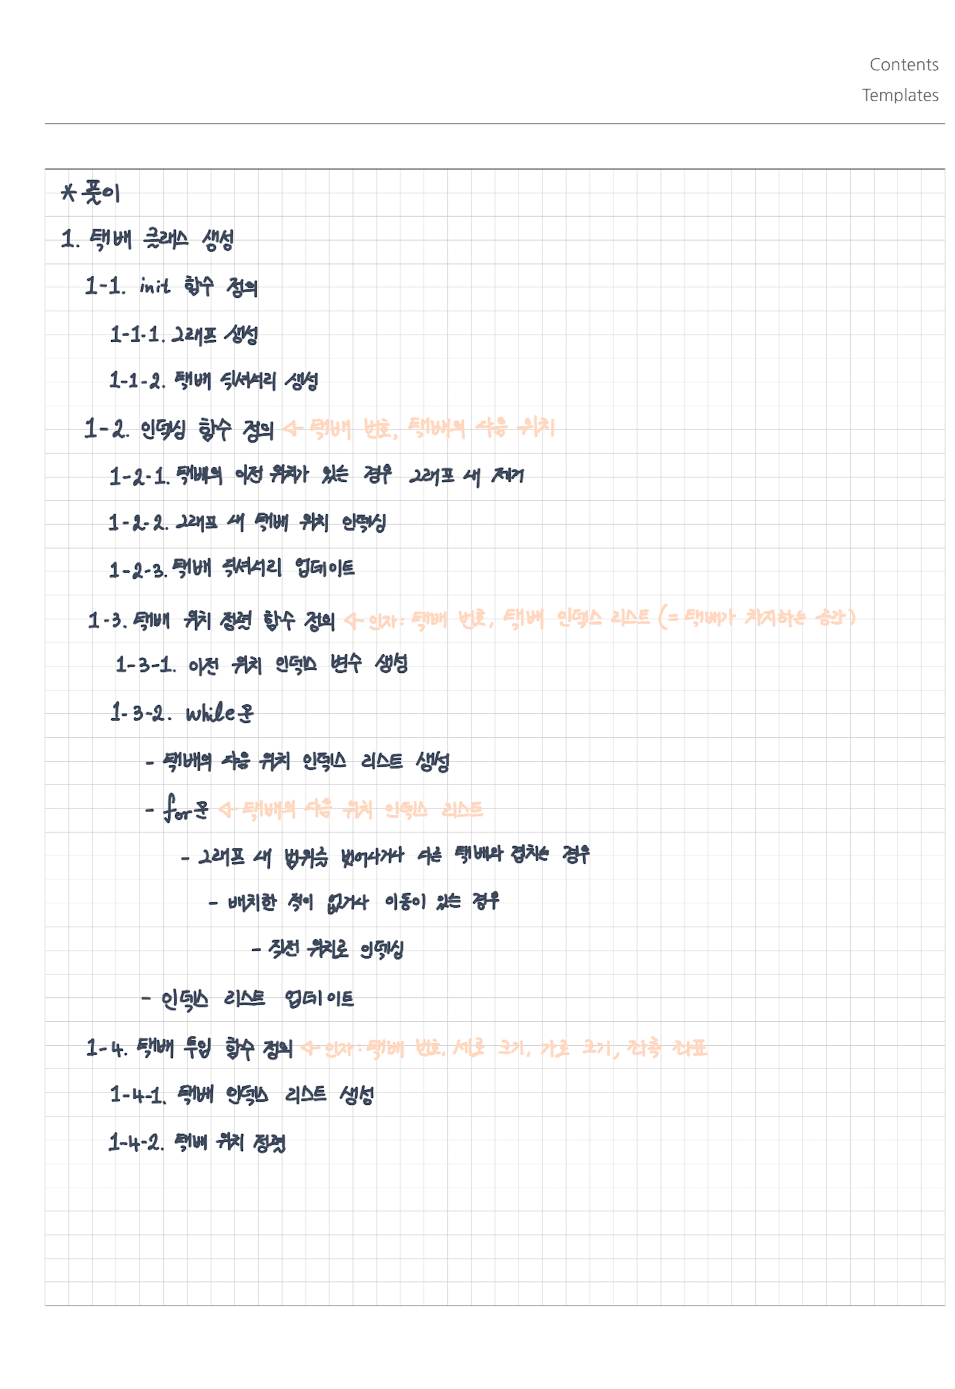 Contents
Templates
* 풀이
1. 택배 클래스 생성
1-1. init 함수 정의
1-1-1. 그래프 생성
1-1-2. 택배 딕셔너리 생성
1-2. 인덱싱 함수 정의 <- 택배 번호, 택배의 다음 위치
1-2-1. 택배의 이전 위치가 있는 경우 그래프 내 제거
1-2-2. 그래프 내 택배 위치 인덱싱
1-2-3. 택배 딕셔너리 업데이트
1-3. 택배 위치 정렬 함수 정의 <- 인자: 택배 번호, 택배 인덱스 리스트 (= 택배가 차지하는 공간)
1-3-1. 이전 위치 인덱스 변수 생성
1-3-2. while문
- 택배의 다음 위치 인덱스 리스트 생성
- for문 <- 택배의 다음 위치 인덱스 리스트
- 그래프 내 범위를 벗어나거나 다른 택배와 겹치는 경우
- 배치한 적이 없거나 이동이 있는 경우
- 직전 위치로 인덱싱
- 인덱스 리스트 업데이트
1-4. 택배 투입 함수 정의 <- 인자: 택배 번호, 세로 크기, 가로 크기, 좌측 좌표
1-4-1. 택배 인덱스 리스트 생성
1-4-2. 택배 위치 정렬